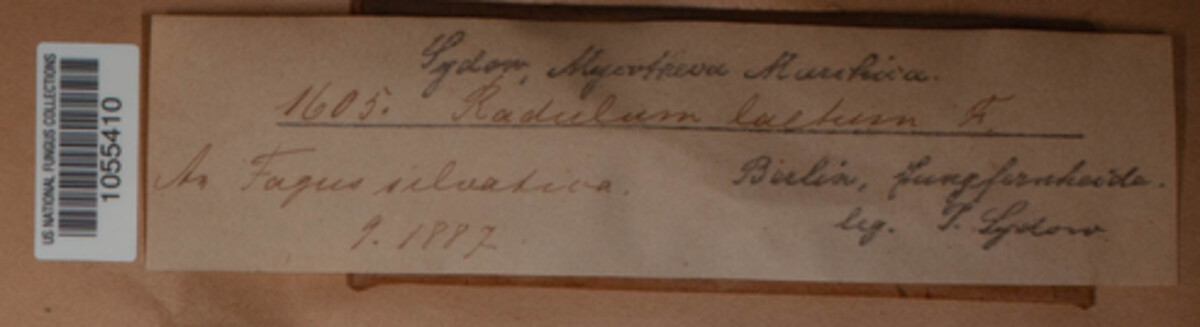 US NATIONAL FUNGUS COLLECTIONS
1055410
Sydow, Mycotheca Marchica.
1605. Radulum laetum F.
An Fagus silvatica.
9. 1887
Berlin, Jungfernheide.
leg. P. Sydow